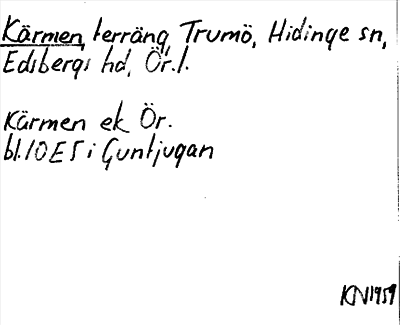 Kärmen, terräng, Trumö, Hidinge sn,
Edsbergs hd, Ör.l.
Kärmen ek Ör.
bl. 10E5i
KN1959